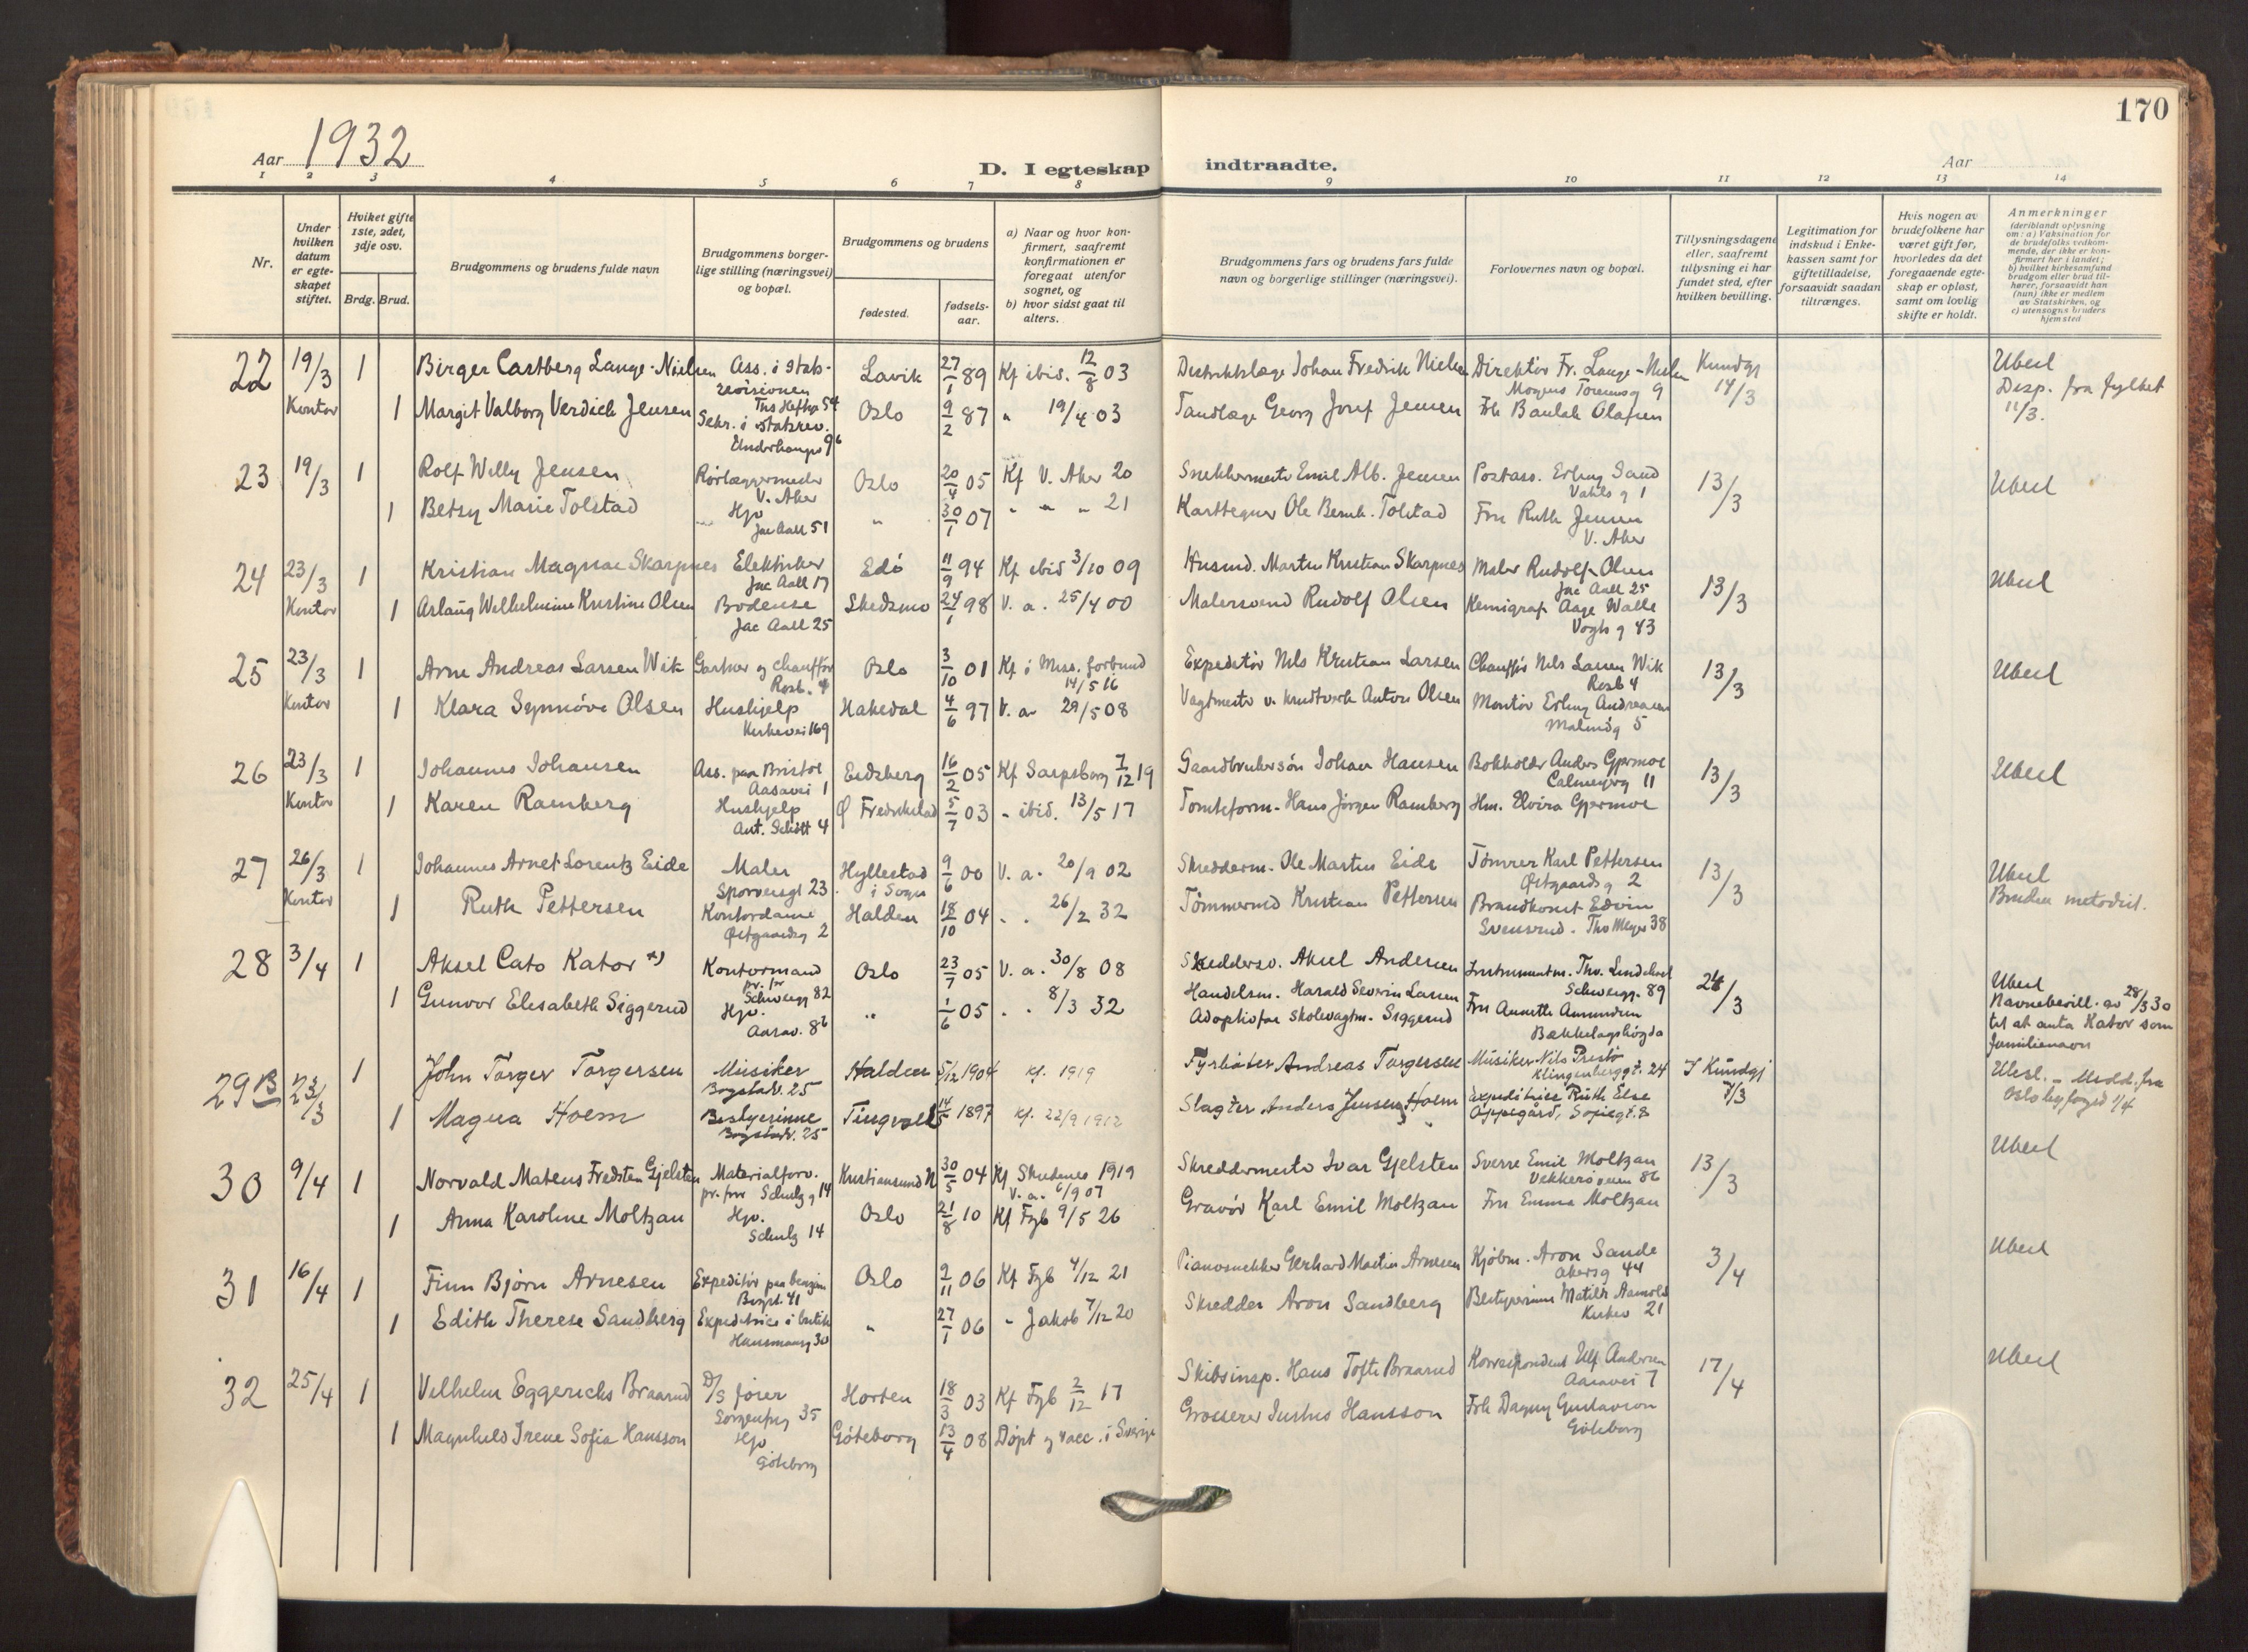 170
Aar 1932
D. I egteskap indtraadte.
Aar
1 2 3 4 5 6 7 8 9 10 11 12 13 14
Nr.
Under hvilken datum er egteskapet stiftet.
Hviket gifte 1ste, 2det, 3dje osv.
Brdg. Brud.
Brudgommens og brudens fulde navn
Brudgommens borgerlige stilling (næringsvei) og bopæl.
Brudgommens og brudens
fødested.
fødselsaar.
a) Naar og hvor konfirmert, saafremt konfirmationen er foregaat utenfor sognet, og
b) hvor sidst gaat til alters.
Brudgommens fars og brudens fars fulde navn og borgerlige stillinger (næringsvei).
Forlovernes navn og bopæl.
Tillysningsdagene eller, saafremt tillysning ei har fundet sted, efter hvilken bevilling.
Legitimation for indskud i Enkekassen samt for giftetilladelse, forsaavidt saadan tiltrænges.
Hvis nogen av brudefolkene har været gift før, hvorledes da det foregaaende egteskap er opløst, samt om lovlig skifte er holdt.
Anmerkninger (deriblandt oplysning om: a) Vaksination for de brudefolks vedkommende, der ikke er konfirmert her i landet; b) hvilket kirkesamfund brudgom eller brud tilhører, forsaavidt han (hun) ikke er medlem av Statskirken, og c) utensogns bruders hjemsted
22 19/3 1 Birger Castberg Lange-Nielsen Ass. i stats-revisionen Ths Heftys 54 Lavik 27/1 89 Kf ibid. 12/8 03 Distriktslæge Johan Fredrik Nielsen Direktör Fr. Lange-Nielsen 9 Kundgj 14/3 Ubesl Disp. fra fylket 11/3.
Kontor 1 Margit Valborg Verdich Jensen Sekr. i statsrev. Oslo 9/2 87 " 19/4 03 Tandlæge Georg Josef Jensen Frk Olafsen
23 19/3 1 Rolf Willy Jensen Rörlæggermester V. Aker Oslo 20/4 05 Kf V. Aker 20 Snekkermester Emil Alb. Jensen Postass. Erling Sand Vahls g 1 13/3 Ubesl
1 Betsy Marie Tolstad Hjv Jac Aall 51 " 30/1 07 " " " 21 Karttegner Ole Bernh. Tolstad Fru Ruth Jensen V. Aker
24 23/3 1 Kristian Magnae Skarpnes Elektriker Jac Aall 17 Edö 11/9 94 Kf ibid 3/10 09 Husmd. Martin Kristian Skarpnes Maler Rudolf Olsen Jac Aall 25 13/3 Ubesl
Kontor 1 Aslaug Wilhelmine Kristine Olsen Bodense Jac Aall 25 Skedsmo 24/1 98 V. a. 25/4 00 Malersvend Rudolf Olsen Kemigraf Aage Walle Vogts g 43
25 23/3 1 Arne Andreas Larsen Wik Gartner og chaufför Rosb. 4 Oslo 3/10 01 Kf i Miss. forbund 14/5 16 Expeditör Nils Kristian Larsen Chaufför Nils Larsen Wik Rosb 4 13/3 Ubesl
Kontor 1 Klara Synnöve Olsen Hushjelp Kirkevei 169 Hakedal 4/6 97 V. a 29/5 08 Vagtmester v. krudtverk Anton Olsen Montör Erling Andreasen Malmög 5
26 23/3 1 Johannes Johansen Ass. paa Bristol Aasavei 1 Eidsberg 16/2 05 Kf Sarpsborg 7/12 19 Gaardbrukersön Johan Hansen Bokholder Anders Gjermoe Calmeyerg 11 13/3 Ubesl
Kontor 1 Karen Ramberg Hushjelp Ant. Schött 4 Ø Fredrikstad 5/7 03 " ibid. 13/5 17 Tomteform. Hans Jörgen Ramberg Hm. Elvira Gjermoe
27 26/3 1 Johannes Arnet Lorentz Eide Maler Sporveisgt 23 Hyllestad i Sogn 9/6 00 V. a. 20/9 02 Skredderm. Ole Martin Eide Tömrer Karl Pettersen Östgaardsg 2 13/3 Ubesl Bruden metodist.
Kontor 1 Ruth Pettersen Kontordame Östgaardsg 2 Halden 18/10 04 " " 26/2 32 Tömmermd Kristian Pettersen Brandkonst Edvin Svensrud. Ths Meyer 38
28 3/4 1 Aksel Cato Kator *) Kontormand pr. fr Schweigg 82 Oslo 23/7 05 V. a. 30/8 08 Skreddersv. Aksel Andersen Instrumentm. Thv. Schweigg. 89 24/3 Ubesl Navnebevill. av 28/3 30 til at anta Kator som familienavn
1 Gunvor Elisabeth Siggerud Hjv. Aasav. 8b " 1/6 05 " " 8/3 32 Handelsm. Harald Severin Larsen Adoptivfar skolevagtm. Siggerud Fru Annette Amundsen Bækkelagshögda
29 B 23/3 1 John Torger Torgersen Musiker Bogstadv. 25 Halden 5/12 1904 kf. 1919 Fyrböter Andreas Torgersen Musiker Nils Prestö Klingenberggt. 24 Kundgj 7/3 Ubesl. - Medd. fra Oslo byfoged 1/4
1 Magna Hoem Bestyrerinne Bogstadv. 25 Tingvoll 14/5 1897 kf. 22/9 1912 Slagter Anders Jensen Hoem Expeditrice Ruth Else Oppegård, Sofiegt. 8
30 9/4 1 Norvald Mateus Fredsten Gjelsten Materialforv. pr. frv Schulz g 14 Kristiansund N 30/5 04 Kf Skudenes 1919 V. a. 6/9 07 Skreddermester Ivar Gjelsten Sverre Emil Moltzau Vækkeröveien 86 13/3 Ubesl
1 Anna Karoline Moltzau Hjv. Schulz 14 Oslo 21/8 10 Kf Fgb 9/5 26 Gravör Karl Emil Moltzau Fru Emma Moltzau
31 16/4 1 Finn Björn Arnesen Expeditör paa bensin Bispt. 41 Oslo 9/11 06 Kf Fgb 4/12 21 Pianosnekker Gerhard Martin Arnesen Kjöbm. Aron Sande Akersg 44 3/4 Ubesl
1 Edith Therese Sandberg Expeditrice i butik Hausmannsg 30 " 27/1 06 " Jakob 7/12 20 Skredder Aron Sandberg Bestyrerinne Matilde Kirkev 21
32 25/4 1 Vilhelm Eggerichs Braarud D/S förer Sorgenfrig 35 Horten 18/3 03 Kf Fgb 2/12 17 Skibsinsp. Hans Tofte Braarud Korrespondent Ulf Andersen Aasavei 7 17/4 Ubesl
1 Magnhild Irene Sofia Hansson Hjv Göteborg Göteborg 13/4 08 Döpt og vacc. i Sverige Grosserer Justus Hansson Frk Dagny Gustavson Göteborg